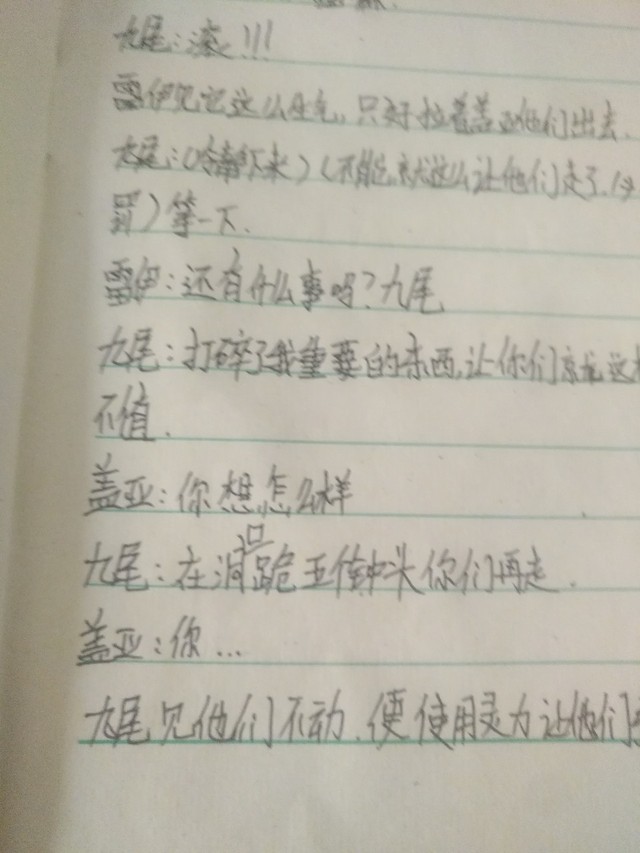 九尾:滚!!!
雷伊见它这么生气,只好拉着盖亚他们出去.
九尾:(冷静下来)(不能就这么让他们走了,
罚)等一下.
雷伊:还有什么事吗?九尾
九尾:打碎了我重要的东西,让你们就这
不值.
盖亚:你想怎么样
九尾:在洞口跪五个钟头你们再走.
盖亚:你...
九尾见他们不动.便使用灵力让他们